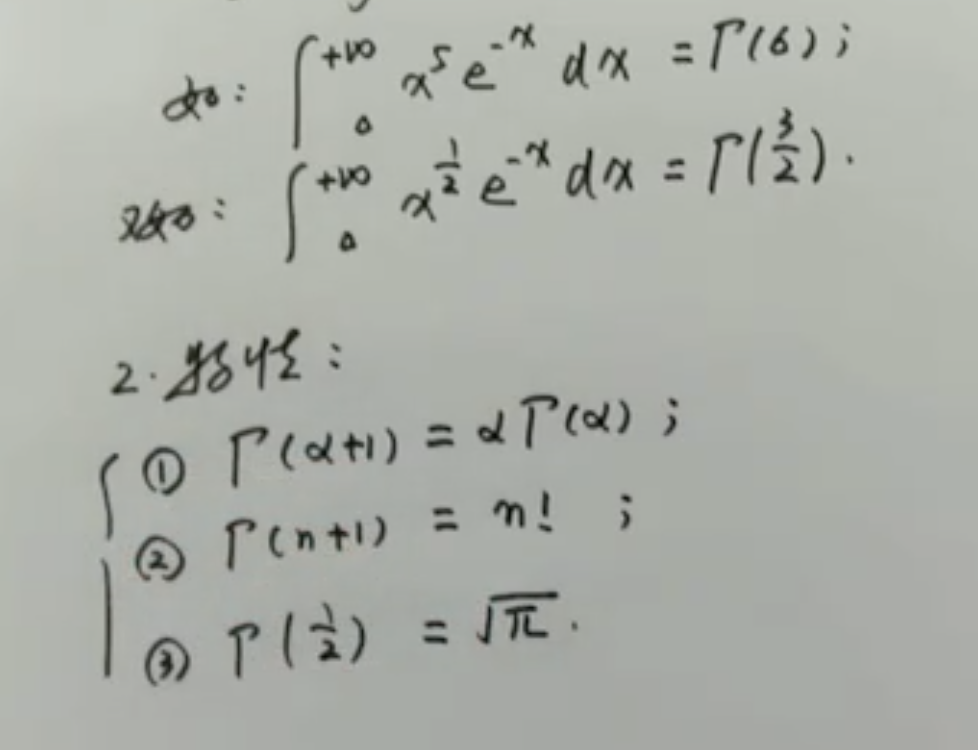 如: ∫₀^{+∞} x⁵ e^{-x} dx = Γ(6);
又如: ∫₀^{+∞} x^{1/2} e^{-x} dx = Γ(3/2).
2. 特性:
① Γ(α+1) = αΓ(α);
② Γ(n+1) = n! ;
③ Γ(1/2) = √π.